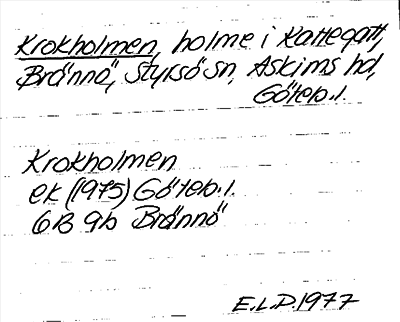 Krokholmen, holme i Kattegatt,
Brännö, Styrsö sn, Askims hd,
Göteb. l.
Krokholmen
ek (1975) Göteb. l.
6B 9b Brännö
E.L.D. 1977